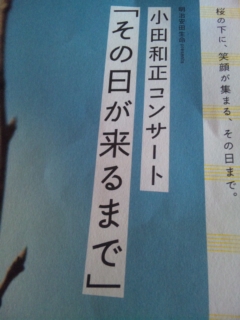 桜の下に、笑顔が集まる、その日まで。
小田和正コンサート
「その日が来るまで」